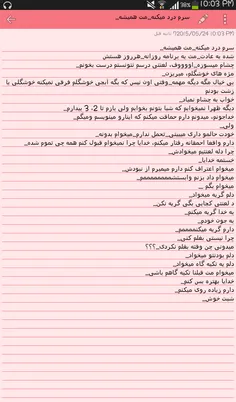 10:03 PM
38%
سرم درد میکنه_مث همیشه_
2015/05/24 10:03 PM
سرم درد میکنه_مث همیشه_
شده یه عادت_مث یه برنامه روزانه_هرروز هستش
چشام میسوزه_اوووووف_لعنتی درسم نتونستم درست بخونم_
مژه های خوشگلم_میریزن_
بی خیال مگه دیگه مهمه_وقتی اون نیس که بگه ایجی خوشگلم فرقی نمیکنه خوشگلی یا
زشت بودنم
خواب به چشام نمیاد_
دیگه ظهرا نمیخوابم که شبا بتونم بخوابم ولی بازم تا 2، 3 بیدارم_
خداجونم_میدونم دارم حماقت میکنم که اینارو مینویسم ومیگم_
ولی_
خودت حالمو داری میبینی_تحمل ندارم_میخوام بدونه_
دارم واقعا احمقانه رفتار میکنم_خدایا چرا نمیخوام قبول کنم همه چی تموم شده_
چرا دله لعنتیم میخوادش_
خستمه خدایا_
میخوام اعتراف کنم دارم میمیرم از نبودش_
میخوام
میخوام بگم _
دلم گریه میخواد_
د لعنتی کجایی بگی گریه نکن_
به خدا گریه میکنم_
به جون خودم_
دارم گریه میکنممممم_
چرا نیستی بغلم کنی_
میدونی چن وقته بغلم نکردی_؟؟؟
دلم بودنتو میخواد_
دلم یه تکیه گاه میخواد_
میخوام مث قبلنا تکیه گاهم باشی_
خدایا بهتره بس کنم_
دارم زیاده روی میکنم_
شبت خوش_